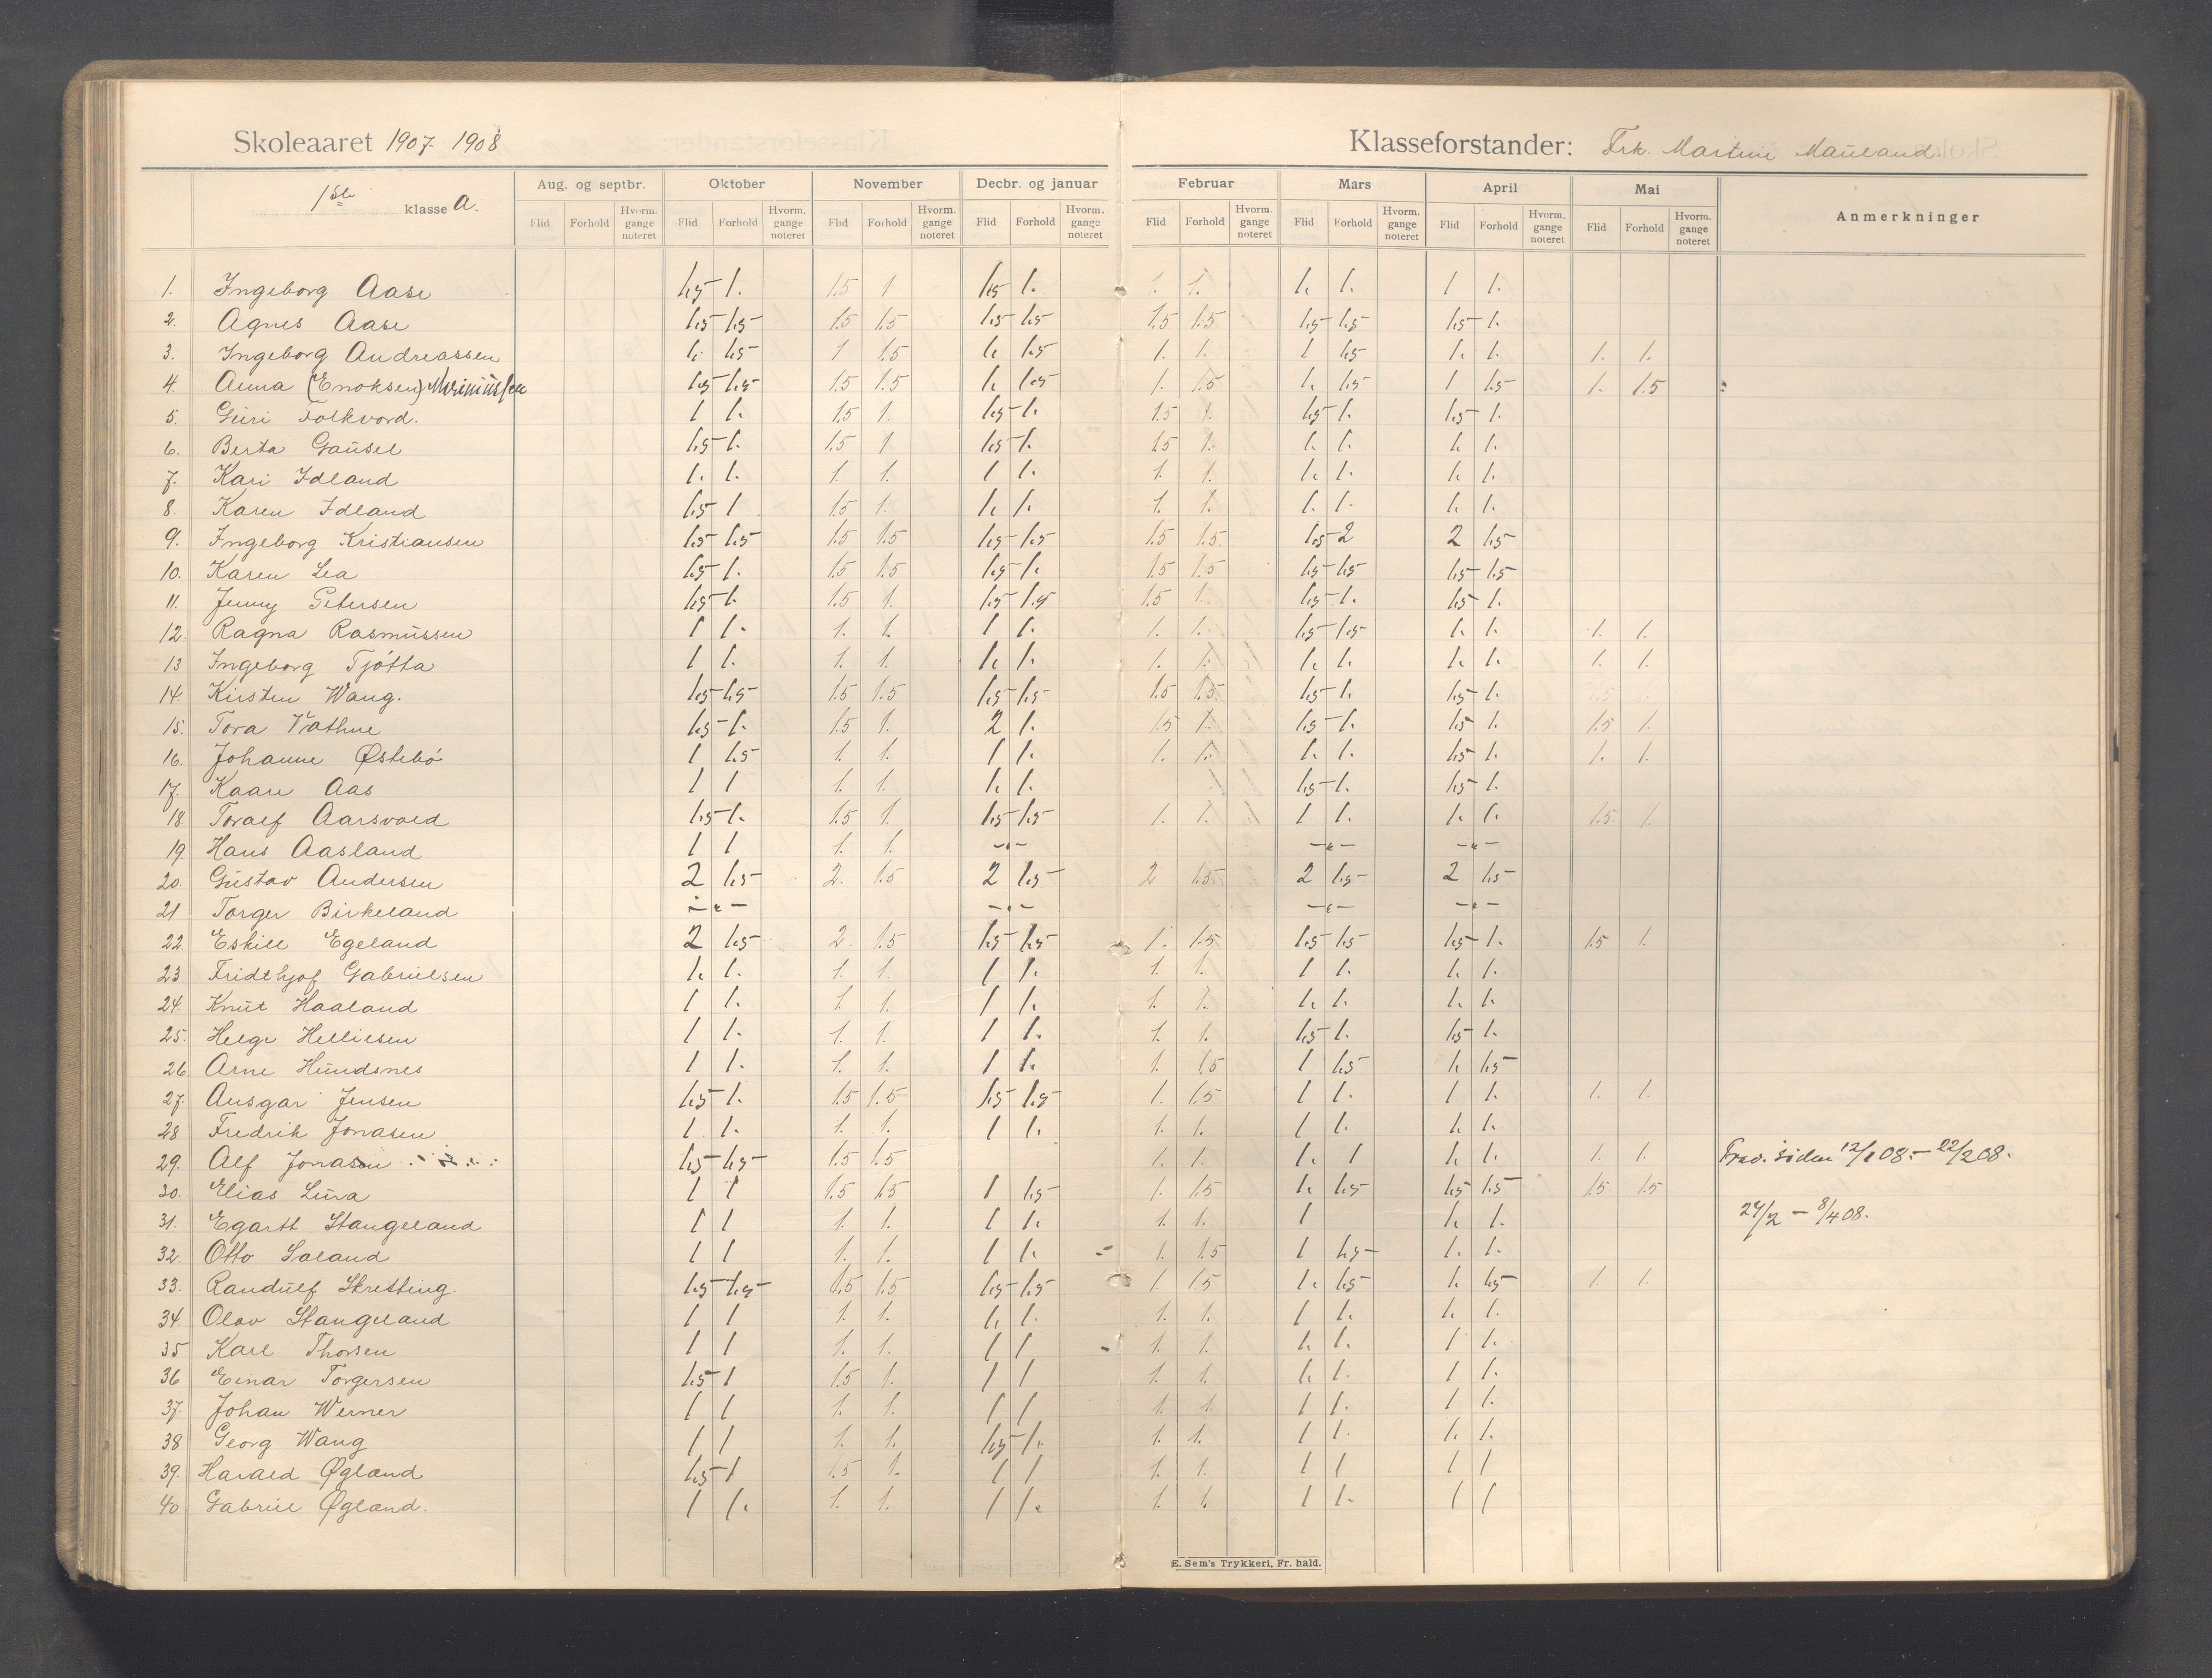 Skoleaaret 1907-1908 Klasseforstander: Frk. Martine Mauland
1ste klasse A. Aug. og septbr. Oktober November Decbr. og januar Februar Mars April Mai Anmerkninger
Flid Forhold Hvorm. gange noteret Flid Forhold Hvorm. gange noteret Flid Forhold Hvorm. gange noteret Flid Forhold Hvorm. gange noteret Flid Forhold Hvorm. gange noteret Flid Forhold Hvorm. gange noteret Flid Forhold Hvorm. gange noteret Flid Forhold Hvorm. gange noteret
1. Ingeborg Aase 1,5 1. 1.5 1 1,5 1. 1. 1. 1. 1. 1 1.
2. Agnes Aase 1,5 1,5 1.5 1.5 1,5 1,5 1.5 1.5 1,5 1,5 1,5 1.
3. Ingeborg Andreassen 1. 1,5 1 1.5 1. 1,5 1. 1. 1 1,5 1. 1. 1. 1.
4. Anna (Enoksen) Mariniussen 1,5 1,5 1.5 1.5 1. 1,5 1. 1.5 1. 1,5 1 1,5 1. 1.5
5. Guri Folkvord. 1 1. 1.5 1. 1,5 1. 1.5 1. 1,5 1. 1,5 1.
6. Berta Gausel 1,5 1. 1.5 1 1,5 1. 1.5 1. 1. 1. 1. 1.
7. Kari Idland 1. 1. 1. 1. 1 1. 1. 1. 1. 1. 1. 1.
8. Karen Idland 1,5 1 1.5 1. 1. 1. 1. 1. 1. 1. 1. 1.
9. Ingeborg Kristiansen 1,5 1,5 1.5 1.5 1,5 1,5 1.5 1.5 1,5 2 2 1,5
10. Karen Lea 1,5 1. 1.5 1.5 1,5 1. 1.5 1.5 1,5 1,5 1,5 1,5
11. Jenny Petersen 1,5 1. 1.5 1. 1,5 1,5 1.5 1. 1,5 1. 1,5 1.
12. Ragna Rasmussen 1 1. 1. 1. 1 1. 1. 1. 1,5 1,5 1. 1. 1. 1.
13 Ingeborg Tjøtta 1 1. 1. 1. 1. 1. 1. 1. 1. 1. 1. 1. 1. 1.
14. Kirsten Wang. 1,5 1,5 1.5 1.5 1,5 1,5 1.5 1.5 1,5 1. 1,5 1.
15. Tora Vathne 1,5 1. 1.5 1. 2 1. 1.5 1. 1,5 1. 1,5 1. 1.5. 1.
16. Johanne Østebö 1 1,5 1. 1. 1 1. 1. 1. 1. 1. 1,5 1. 1. 1.
17. Kaare Aas 1 1 1. 1. 1. 1. 1,5 1. 1,5 1.
18. Toralf Aarsvold 1,5 1. 1.5 1. 1,5 1,5 1. 1. 1 1. 1. 1. 1.5. 1.
19. Hans Aasland 1 1 1. 1. -"- -"- -"-
20. Gustav Andersen 2 1,5 2. 1.5 2 1,5 2 1.5 2 1,5 2 1,5
21 Torger Birkeland -"- -"- -"- -"-
22. Eskill Egeland 2 1,5 2. 1.5 1,5 1,5 1. 1.5 1,5 1,5 1,5 1. 1.5 1.
23 Fridthjof Gabrielsen 1. 1. 1. 1. 1 1. 1. 1. 1 1. 1. 1.
24. Knut Haaland 1 1. 1. 1. 1 1. 1. 1. 1. 1. 1. 1.
25. Helge Helliesen 1 1. 1. 1. 1 1. 1. 1. 1,5 1. 1,5 1.
26 Arne Hundsnes 1 1. 1. 1. 1 1. 1. 1.5 1 1,5 1. 1,5
27. Ansgar Jensen 1,5 1. 1.5 1.5 1,5 1,5 1. 1.5 1 1. 1 1. 1. 1.
28 Fredrik Jonasen 1 1. 1. 1. 1 1. 1. 1. 1 1. 1. 1.
29. Alf Jonasen 1,5 1,5 1.5 1.5 1. 1. 1. 1 1. 1. 1. 1. Frav. siden 12/1 08. - 22/2 08.
30. Elias Lura 1 1 1.5 1.5 1 1,5 1. 1.5 1. 1,5 1,5 1,5 1.5 1.5
31. Egartt Stangeland 1 1 1. 1. 1 1. 1. 1. 1 1. 1. 24/2 - 8/4 08.
32. Otto Saland 1 1 1. 1. 1 1. 1. 1.5 1 1,5 1. 1.
33. Randulf Skretting. 1,5 1,5 1.5 1.5 1,5 1,5 1. 1.5 1. 1,5 1. 1,5 1. 1.
34. Olav Stangeland 1 1 1. 1. 1. 1. 1. 1. 1 1. 1. 1.
35 Karl Thorsen 1 1 1. 1. 1 1 1. 1. 1. 1. 1 1.
36 Einar Torgersen 1,5 1 1.5 1. 1 1 1. 1. 1. 1. 1 1.
37. Johan Werner 1 1 1. 1. 1 1 1. 1. 1 1. 1 1.
38 Georg Wang 1 1 1. 1. 1,5 1. 1. 1. 1 1. 1. 1.
39. Harald Øgland 1,5 1 1.5 1. 1 1 1. 1. 1 1 1 1
40 Gabriel Øgland. 1 1. 1. 1. 1 1. 1. 1. 1 1. 1 1
E. Sem's Trykkeri, Fr. hald.